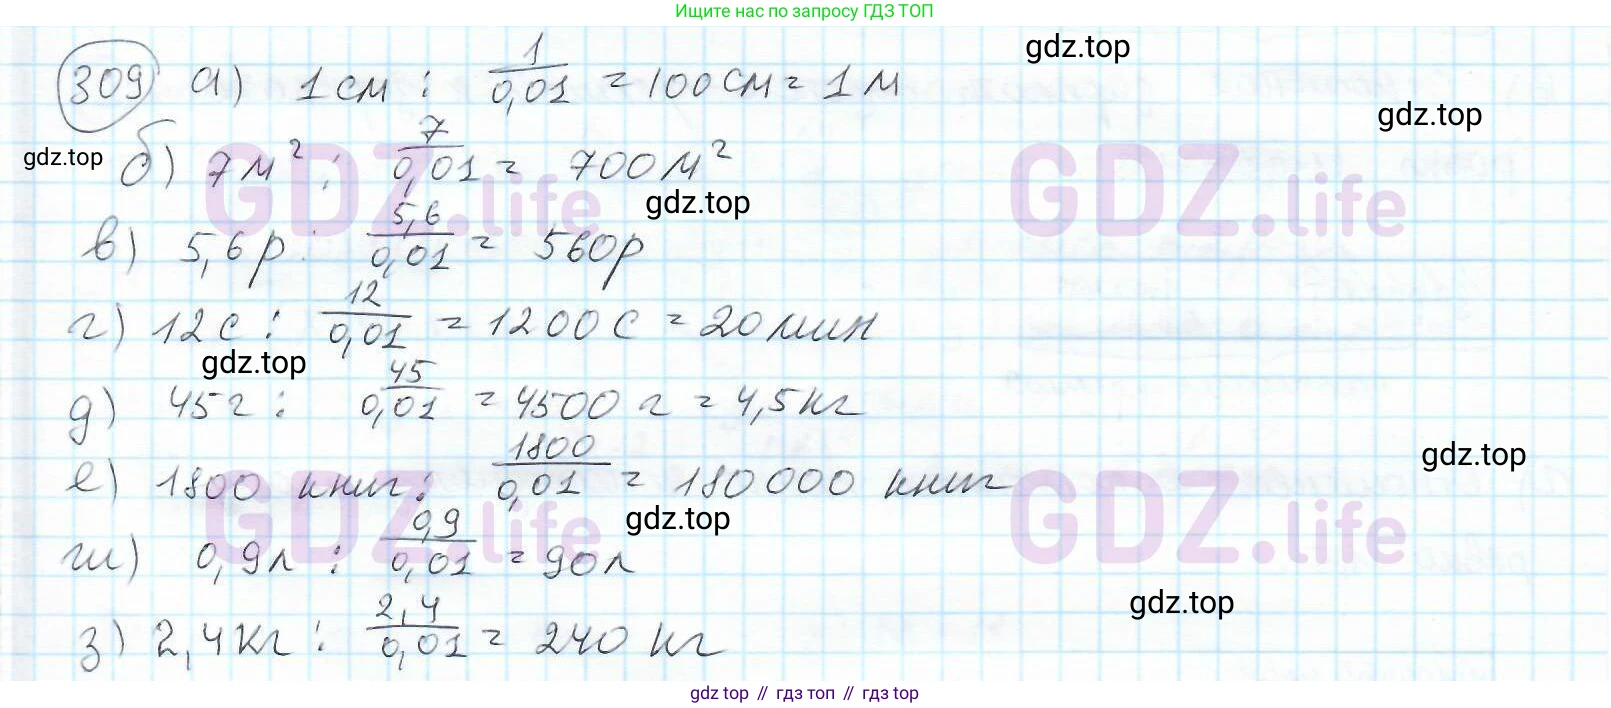 Ищите нас по запросу ГДЗ ТОП
309 а) 1 см : 1/0,01 = 100 см = 1 м
gdz.top
gdz.top
gdz.top
б) 7 м² : 7/0,01 = 700 м²
GDZ.life
GDZ.life
gdz.top
в) 5,6 р : 5,6/0,01 = 560 р
г) 12 с : 12/0,01 = 1200 с = 20 мин
gdz.top
д) 45 г : 45/0,01 = 4500 г = 4,5 кг
gdz.top
е) 1800 книг : 1800/0,01 = 180000 книг
GDZ.life
GDZ.life
gdz.top
ж) 0,9 л : 0,9/0,01 = 90 л
gdz.top
з) 2,4 кг : 2,4/0,01 = 240 кг
gdz top // гдз топ // гдз top